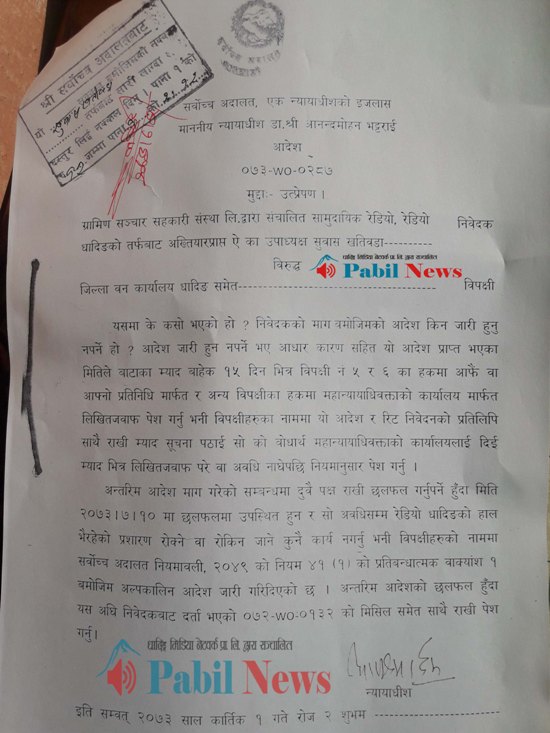 श्री सर्वोच्च अदालतबाट
सर्वोच्च अदालत
सर्वोच्च अदालत, एक न्यायाधीशको इजलास
माननीय न्यायाधीश डा.श्री आनन्दमोहन भट्टराई
आदेश
०७३-WO-०२८७
मुद्दाः- उत्प्रेषण ।
ग्रामिण सञ्चार सहकारी संस्था लि.द्वारा संचालित सामुदायिक रेडियो, रेडियो निवेदक
धादिङको तर्फबाट अख्तियारप्राप्त ऐ का उपाध्यक्ष सुवास खतिवडा----------
विरुद्ध
धादिङ मिडिया नेटवर्क प्रा. लि. द्वारा सञ्चालित
Pabil News
जिल्ला वन कार्यालय धादिङ समेत------------------------------ विपक्षी
यसमा के कसो भएको हो ? निवेदकको माग बमोजिमको आदेश किन जारी हुनु
नपर्ने हो ? आदेश जारी हुन नपर्ने भए आधार कारण सहित यो आदेश प्राप्त भएका
मितिले बाटाका म्याद बाहेक १५ दिन भित्र विपक्षी नं ५ र ६ का हकमा आफै वा
आफ्नो प्रतिनिधि मार्फत र अन्य विपक्षीका हकमा महान्यायाधिवक्ताको कार्यालय मार्फत
लिखितजवाफ पेश गर्नु भनी विपक्षीहरुका नाममा यो आदेश र रिट निवेदनको प्रतिलिपि
साथै राखी म्याद सूचना पठाई सो को वोधार्थ महान्यायाधिवक्ताको कार्यालयलाई दिई
म्याद भित्र लिखितजवाफ परे वा अवधि नाघेपछि नियमानुसार पेश गर्नु ।
अन्तरिम आदेश माग गरेको सम्बन्धमा दुवै पक्ष राखी छलफल गर्नुपर्ने हुँदा मिति
२०७३।७।१० मा छलफलमा उपस्थित हुन र सो अवधिसम्म रेडियो धादिङको हाल
भैरहेको प्रशारण रोक्ने वा रोकिन जाने कुनै कार्य नगर्नु भनी विपक्षीहरुको नाममा
सर्वोच्च अदालत नियमावली, २०४९ को नियम ४१ (१) को प्रतिबन्धात्मक वाक्यांश १
बमोजिम अल्पकालिन आदेश जारी गरिदिएको छ । अन्तरिम आदेशको छलफल हुँदा
यस अघि निवेदकबाट दर्ता भएको ०७२-WO-०१३२ को मिसिल समेत साथै राखी पेश
गर्नु।
धादिङ मिडिया नेटवर्क प्रा. लि. द्वारा सञ्चालित
Pabil News
न्यायाधीश
इति सम्वत् २०७३ साल कार्तिक १ गते रोज २ शुभम -------------------